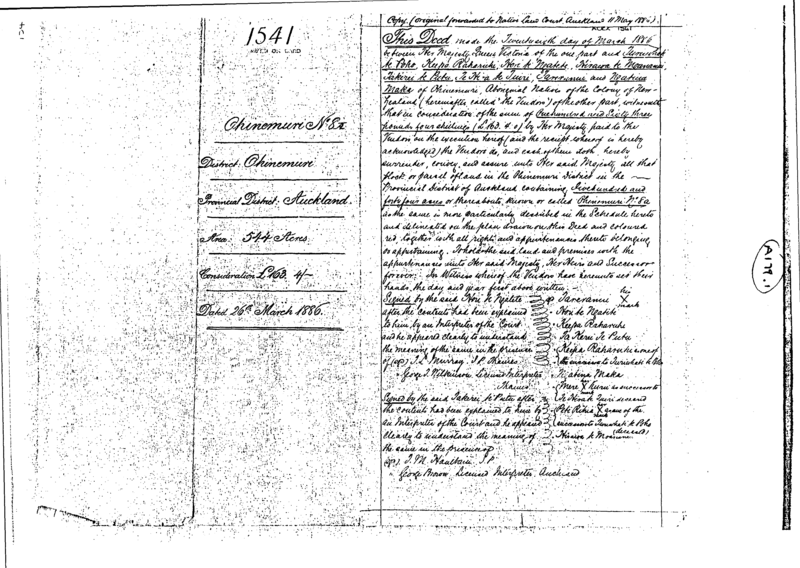 1541
Ohinemuri No 8a
District: Ohinemuri
Provincial District: Auckland.
Area: 544 Acres.
Consideration £163. 4/-
Dated 26th March 1886.
Copy. (original forwarded to Native Land Court, Auckland 11 May 1886).
This Deed made the Twentysixth day of March 1886
between Her Majesty Queen Victoria of the one part and
te Poho, Keepa Raharuhi, Hori te Ngatete,
Te Hira te Tuiri, Tareranui and Matina
Maka of Ohinemuri, Aboriginal Natives of the Colony of New
Zealand (hereinafter called "the Vendors") of the other part, witnesseth
that in consideration of the sum of Onehundred and Sixty three
pounds four shillings (£163. 4. 0) by Her Majesty paid to the
Vendors on the execution hereof (and the receipt whereof is hereby
acknowledged) the Vendors do, and each of them doth hereby
surrender, convey, and assure unto Her said Majesty all that
block or parcel of land in the Ohinemuri District in the
Provincial District of Auckland containing Fivehundred and
fortyfour acres or thereabouts, known or called Ohinemuri No. 8a
as the same is more particularly described in the Schedule hereto
and delineated on the plan drawn on this Deed and coloured
red, together with all rights and appurtenances thereto belonging
or appertaining. To hold the said land and premises with the
appurtenances unto Her said Majesty, Her Heirs and Successors
forever: In Witness whereof the Vendors have hereunto set their
hands, the day and year first above written.
Signed by the said Hori te Ngatete
after the contents had been explained
to him, by an Interpreter of the Court
and he appeared clearly to understand
the meaning of the same in the presence
of J.P. Thames
George Wilkinson Licensed Interpreter
Thames
Signed by the said Takerei te Putu after
the contents had been explained to him by
an Interpreter of the Court and he appeared
clearly to understand the meaning of
the same in the presence of
J.P.
George Brown, Licensed Interpreter, Auckland
his
Tareranui X
mark
Hori te Ngatete
Keepa Raharuhi
Keepa Raharuhi as one of
Matina Maka
Mere X as successor to
deceased
X as one of the
mark
successors to te Poho
(deceased)